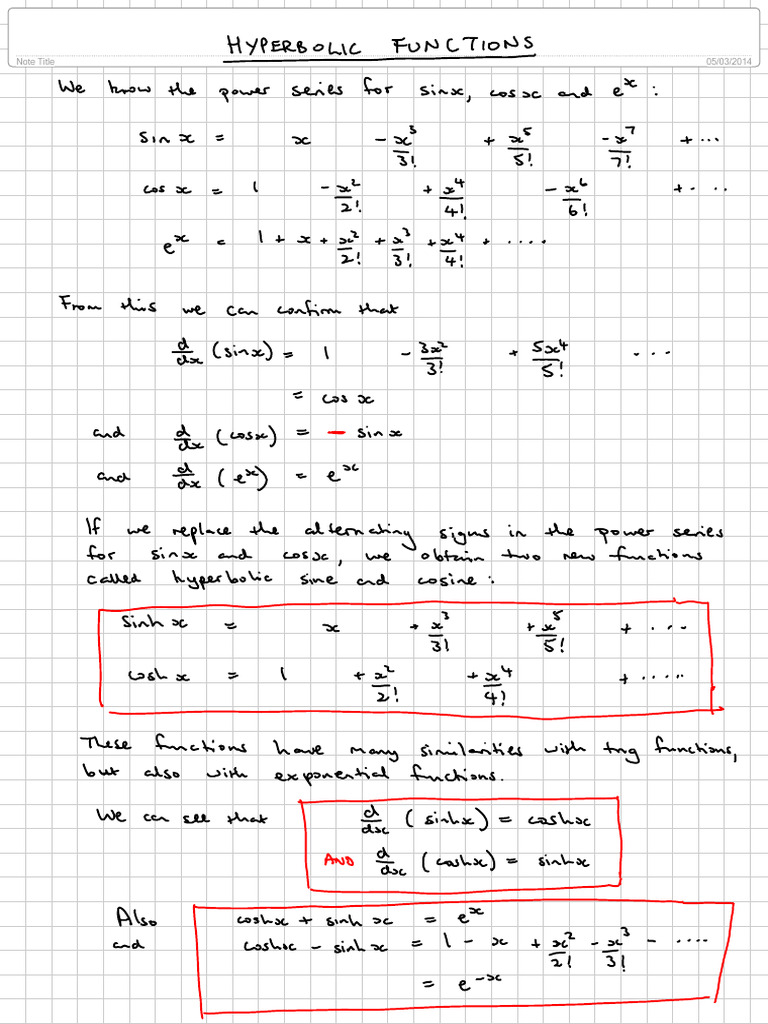 HYPERBOLIC FUNCTIONS
Note Title 05/03/2014
We know the power series for sinx, cosx and e^x :
sin x = x - x^3/3! + x^5/5! - x^7/7! + ...
cos x = 1 - x^2/2! + x^4/4! - x^6/6! + ...
e^x = 1 + x + x^2/2! + x^3/3! + x^4/4! + ....
From this we can confirm that
d/dx (sinx) = 1 - 3x^2/3! + 5x^4/5! ...
= cos x
and d/dx (cosx) = - sin x
and d/dx (e^x) = e^x
If we replace the alternating signs in the power series
for sinx and cosx, we obtain two new functions
called hyperbolic sine and cosine :
Sinh x = x + x^3/3! + x^5/5! + ...
cosh x = 1 + x^2/2! + x^4/4! + .....
These functions have many similarities with trig functions,
but also with exponential fuctions.
We can see that d/dx (sinhx) = coshx
AND d/dx (coshx) = sinhx
Also coshx + sinh x = e^x
and coshx - sinh x = 1 - x + x^2/2! - x^3/3! - ....
= e^-x